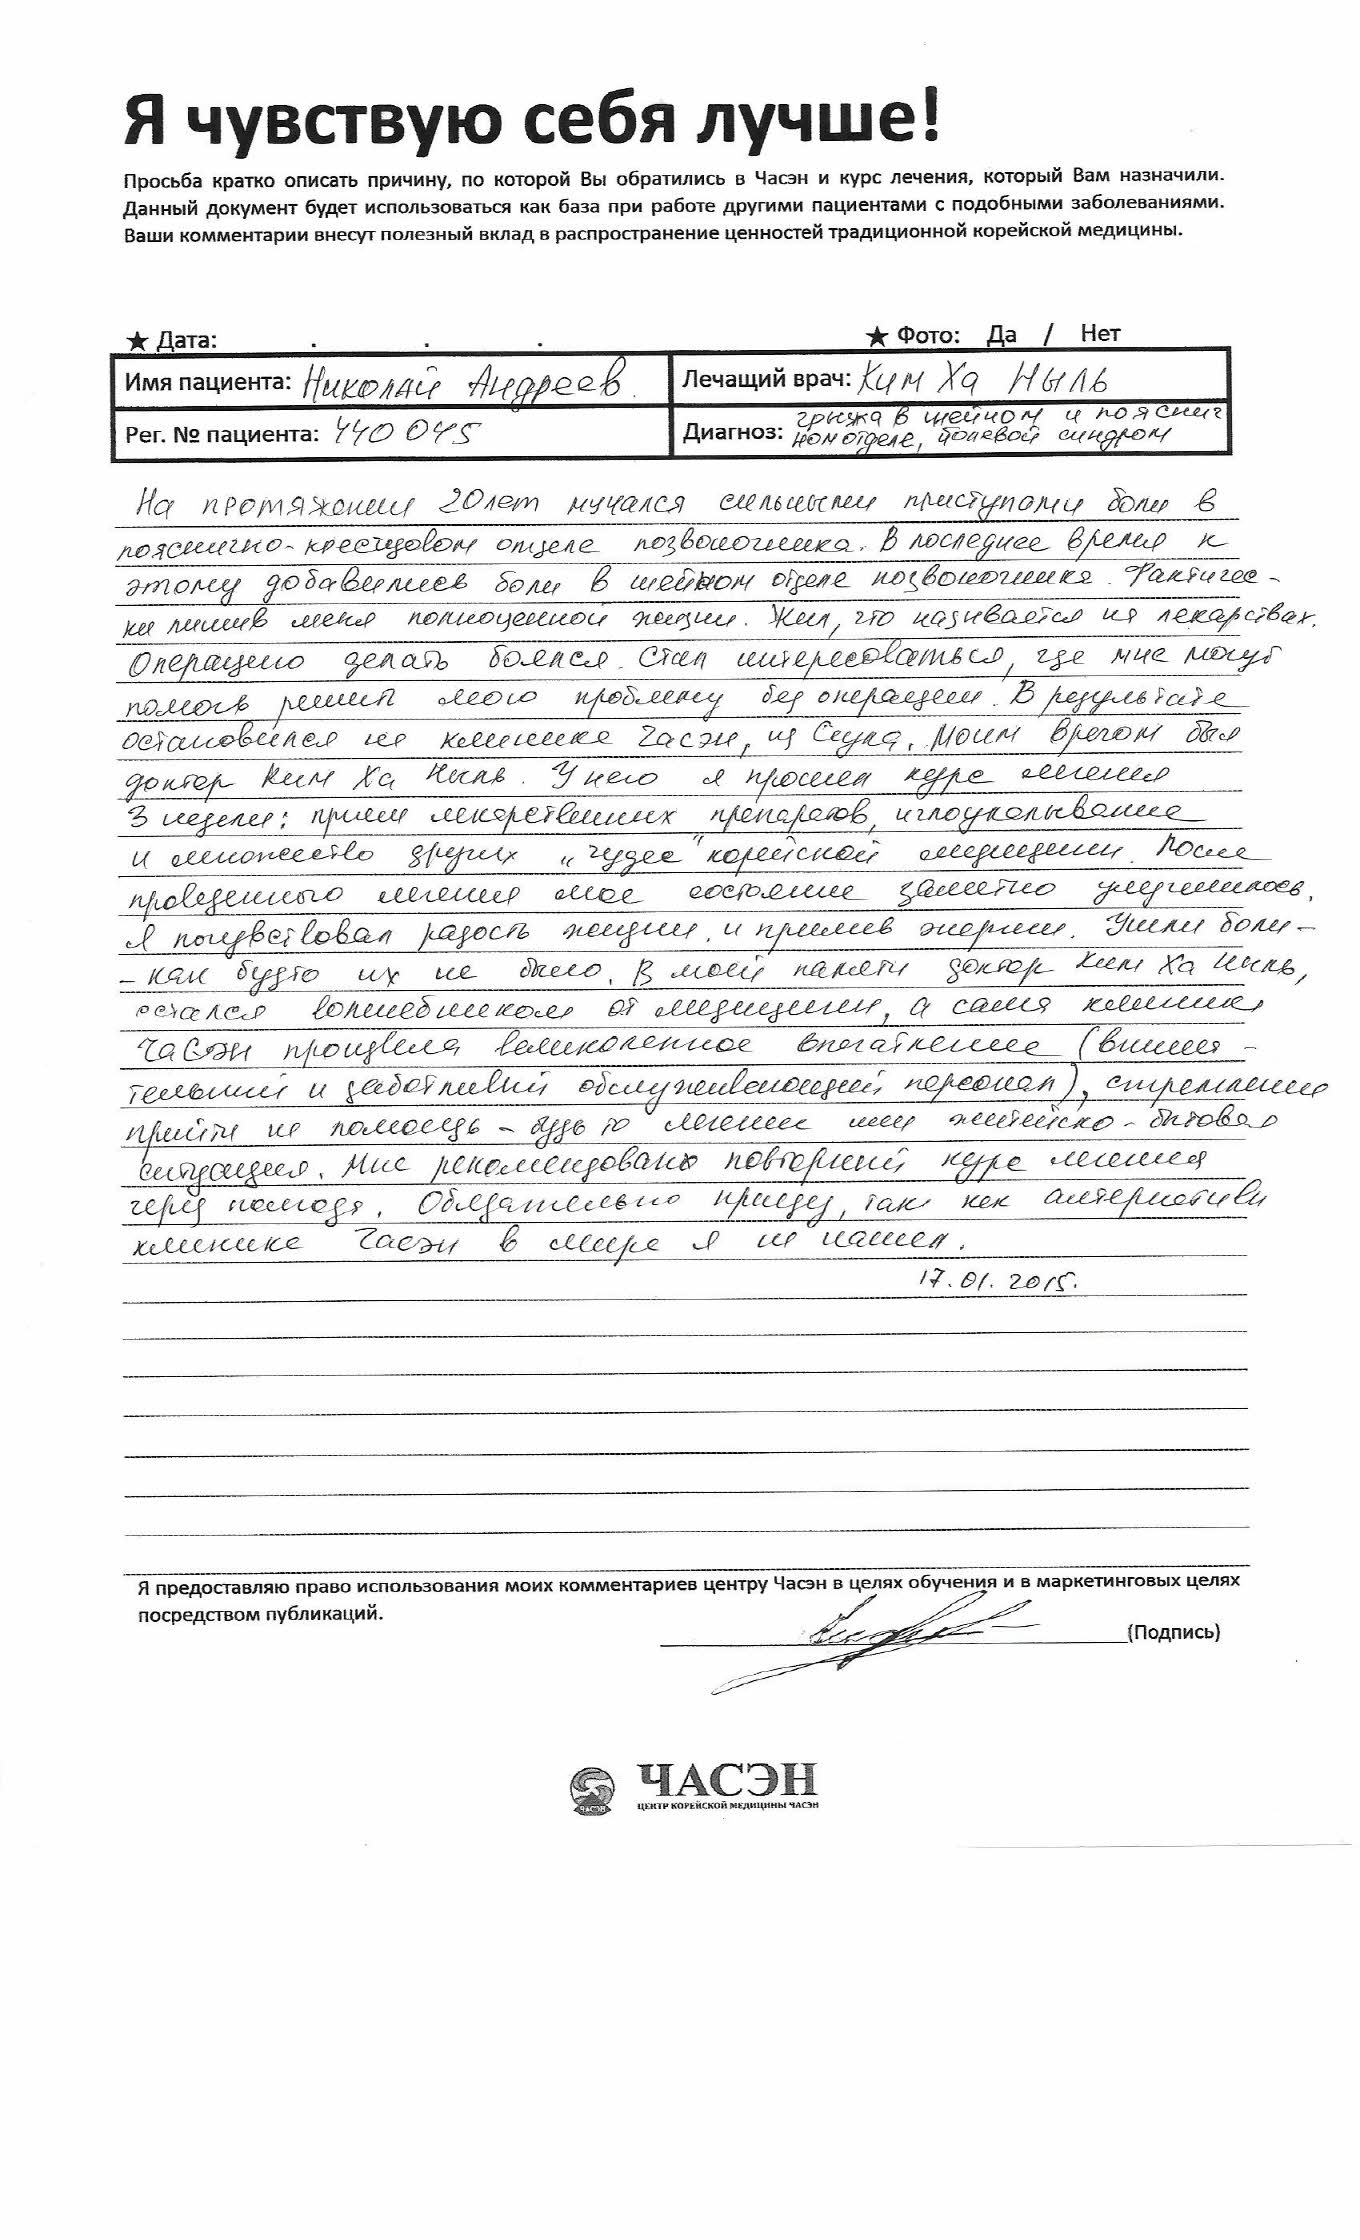 Я чувствую себя лучше!
Просьба кратко описать причину, по которой Вы обратились в Часэн и курс лечения, который Вам назначили.
Данный документ будет использоваться как база при работе другими пациентами с подобными заболеваниями.
Ваши комментарии внесут полезный вклад в распространение ценностей традиционной корейской медицины.
★ Дата: . . . ★ Фото: Да / Нет
Имя пациента: Николай Андреев. Лечащий врач: Ким Ха Ныль
Рег. № пациента: 440045 Диагноз: грыжа в шейном и пояснич
ном отделе, болевой синдром
На протяжении 20 лет мучался сильными приступами боли в
пояснично-крестцовом отделе позвоночника. В последнее время к
этому добавились боли в шейном отделе позвоночника. Фактичес-
ки лишив меня полноценной жизни. Жил, что называется на лекарствах.
Операцию делать боялся. Стал интересоваться, где мне могут
помочь решить мою проблему без операции. В результате
остановился на клинике Часэн, из Сеула. Моим врачом был
доктор Ким Ха Ныль. У него я прошел курс лечения
3 недели: прием лекарственных препаратов, иглоукалывание
и множество других „чудес" корейской медицины. После
проведенного лечения мое состояние заметно улучшилось.
Я почувствовал радость жизни и прилив энергии. Ушли боли -
- как будто их не было. В моей памяти доктор Ким Ха Ныль,
остался волшебником от медицины, а сама клиника
Часэн произвела великолепное впечатление (внима -
тельный и заботливый обслуживающий персонал), стремление
прийти на помощь - будь то лечение или житейско-бытовая
ситуация. Мне рекомендовано повторный курс лечения
через полгода. Обязательно приеду, так как альтернативы
клинике Часэн в мире я не нашел.
17.01.2015.
Я предоставляю право использования моих комментариев центру Часэн в целях обучения и в маркетинговых целях
посредством публикаций.
(Подпись)
ЧАСЭН
ЦЕНТР КОРЕЙСКОЙ МЕДИЦИНЫ ЧАСЭН
ЧАСЭН